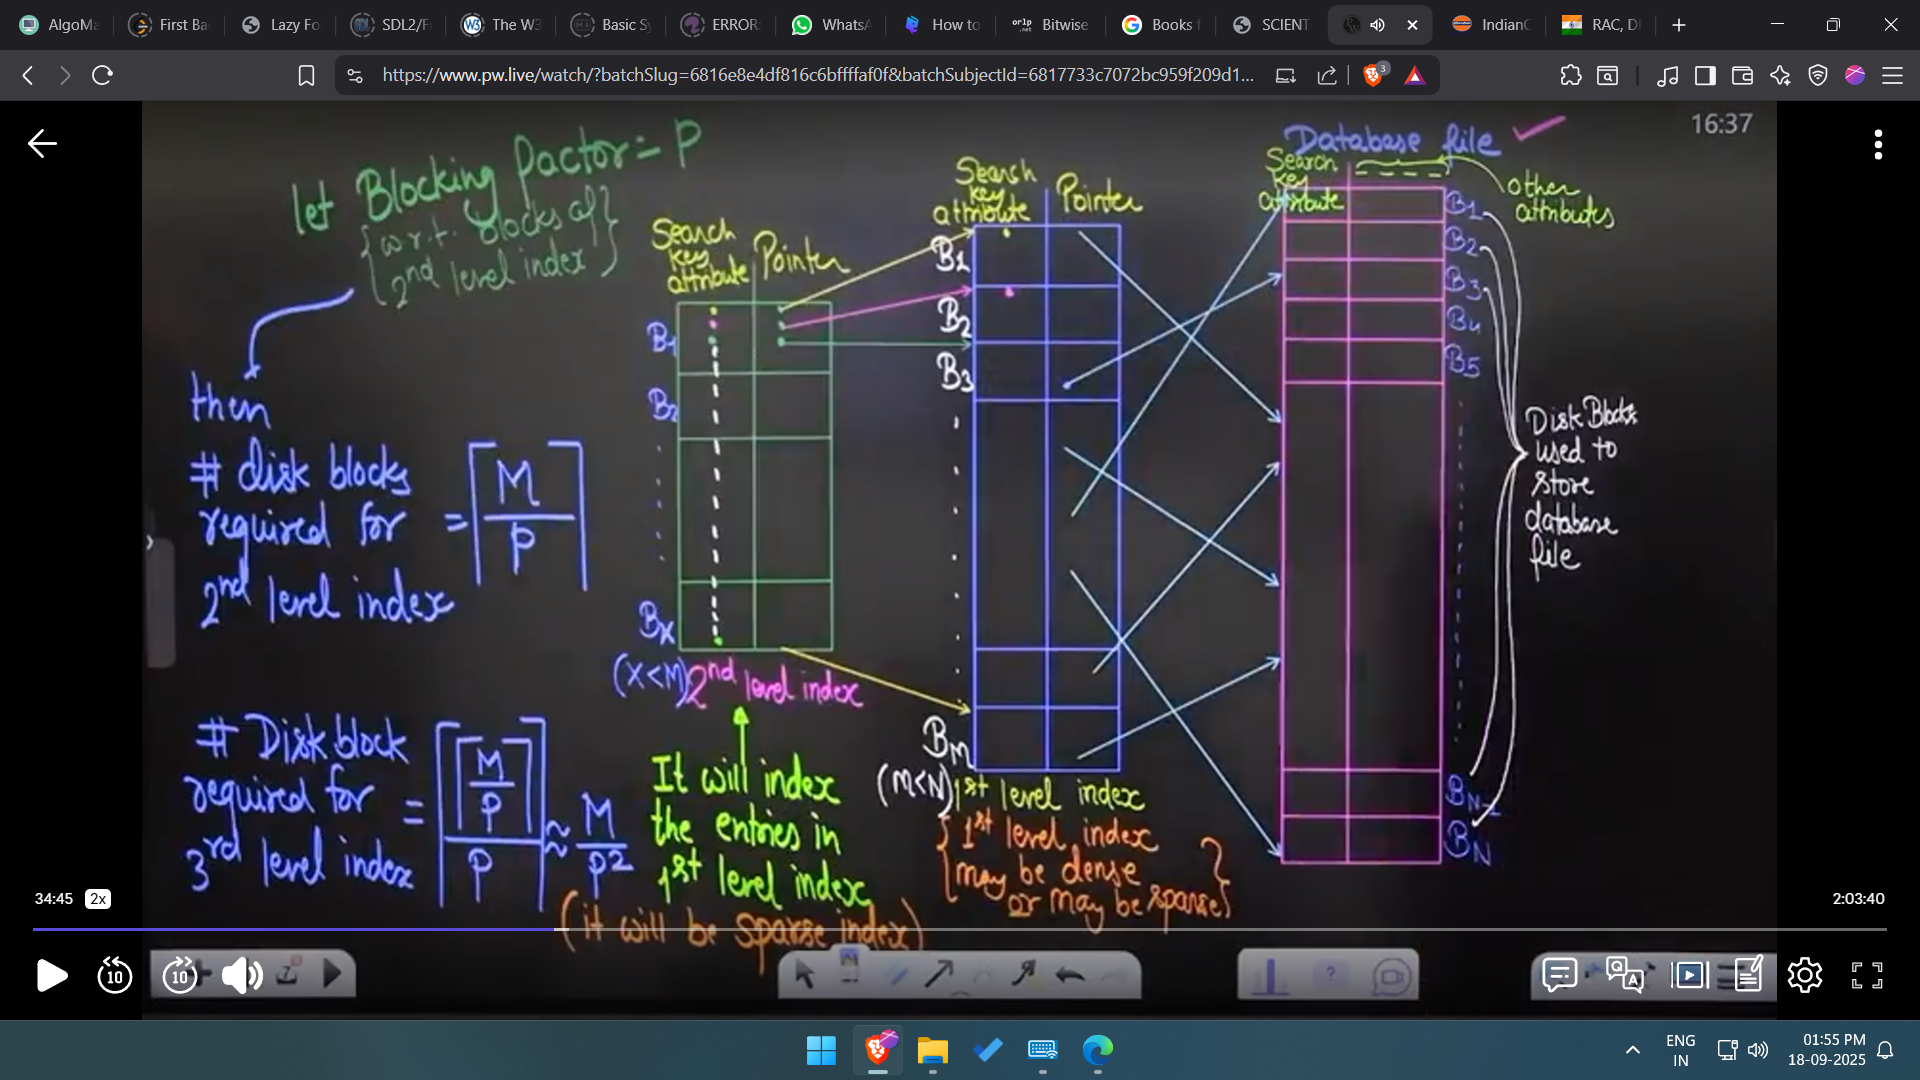 AlgoMa
First Ba
Lazy Fo
SDL2/F
The W3
Basic Sy
ERROR:
WhatsA
How to
orlp .net
Bitwise
Books f
SCIENT
IndianO
RAC, D
https://www.pw.live/watch/?batchSlug=6816e8e4df816c6bffffaf0f&batchSubjectId=6817733c7072bc959f209d1...
3
16:37
let Blocking factor = P
{w.r.t. blocks of}
{2nd level index}
then
# disk blocks
required for
2nd level index
= ⌈M/P⌉
# Disk block
required for
3rd level index
= ⌈⌈M/P⌉/P⌉ ≈ M/P2
Search
key
attribute
Pointer
B1
B2
Bx
(X<M) 2nd level index
It will index
the entries in
1st level index
(it will be sparse index)
Search
key
attribute
Pointer
B1
B2
B3
BM
(M<N) 1st level index
{1st level index
may be dense
or may be sparse}
Database file
Search
key
attribute
other
attributes
B1
B2
B3
B4
B5
BN-1
BN
Disk Blocks
used to
store
database
file
34:45
2x
2:03:40
10
10
?
Q
A
ENG
IN
01:55 PM
18-09-2025